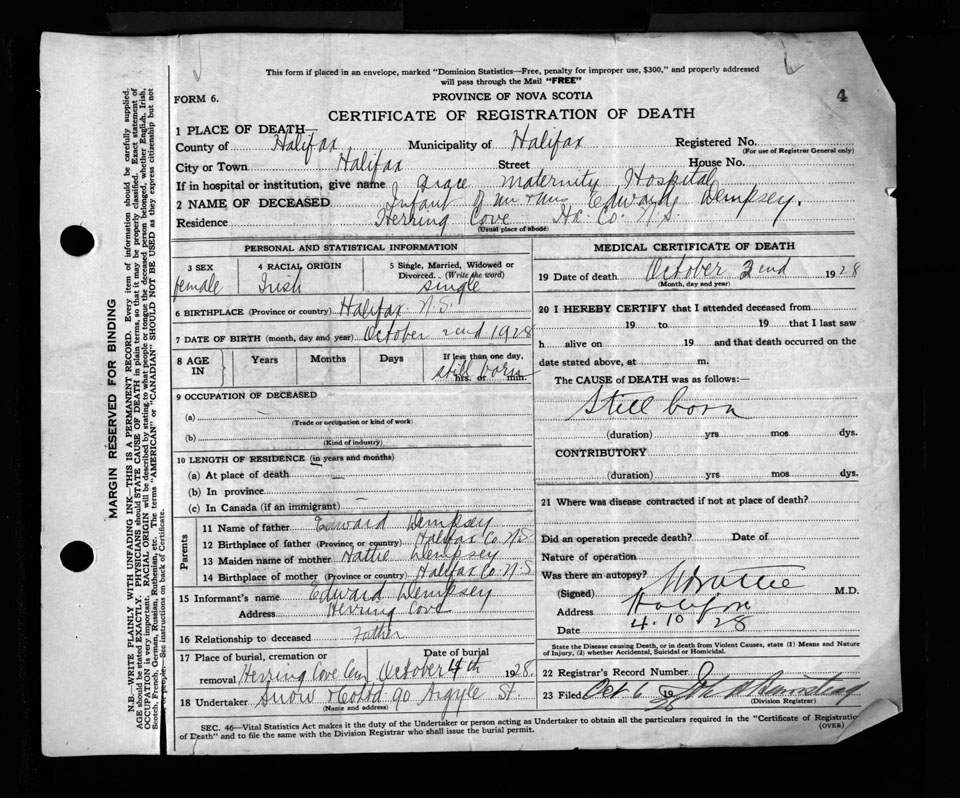 This form if placed in an envelope, marked "Dominion Statistics—Free, penalty for improper use, $300," and properly addressed
will pass through the Mail "FREE"
FORM 6.
PROVINCE OF NOVA SCOTIA
4
CERTIFICATE OF REGISTRATION OF DEATH
1 PLACE OF DEATH—
County of Halifax Municipality of Halifax Registered No.
(For use of Registrar General only)
City or Town Halifax Street House No.
If in hospital or institution, give name Grace Maternity Hospital
2 NAME OF DECEASED Infant of Mr & Mrs Edward Dempsey.
Residence Herring Cove Hx. Co. N.S.
(Usual place of abode)
PERSONAL AND STATISTICAL INFORMATION
3 SEX female
4 RACIAL ORIGIN Irish
5 Single, Married, Widowed or
Divorced. (Write the word)
single
6 BIRTHPLACE (Province or country) Halifax N.S.
7 DATE OF BIRTH (month, day and year) October 2nd 1928
8 AGE IN
Years Months Days
If less than one day,
still born
hrs. or min.
9 OCCUPATION OF DECEASED
(a)
(Trade or occupation or kind of work)
(b)
(Kind of industry)
10 LENGTH OF RESIDENCE (in years and months)
(a) At place of death
(b) In province
(c) In Canada (if an immigrant)
Parents
11 Name of father Edward Dempsey
12 Birthplace of father (Province or country) Halifax Co. N.S.
13 Maiden name of mother Hattie Dempsey
14 Birthplace of mother (Province or country) Halifax Co. N.S
15 Informant's name Edward Dempsey
Address Herring Cove
16 Relationship to deceased Father
17 Place of burial, cremation or Date of burial
removal Herring Cove Cem October 4th 1928.
18 Undertaker Snow & Co Ltd 90 Argyle St.
(Name and address)
MEDICAL CERTIFICATE OF DEATH
19 Date of death October 2nd 1928
(Month, day and year)
20 I HEREBY CERTIFY that I attended deceased from
19 to 19 that I last saw
h alive on 19 and that death occurred on the
date stated above, at m.
The CAUSE of DEATH was as follows:—
Still born
(duration) yrs mos dys.
CONTRIBUTORY
(duration) yrs mos dys.
21 Where was disease contracted if not at place of death?
Did an operation precede death? Date of
Nature of operation
Was there an autopsy?
(Signed) M.D.
Address Halifax
Date 4.10 28
State the Disease causing Death, or in death from Violent Causes, state (1) Means and Nature
of Injury, (2) whether Accidental, Suicidal or Homicidal.
22 Registrar's Record Number
23 Filed Oct 6 1928
(Division Registrar)
SEC. 46—Vital Statistics Act makes it the duty of the Undertaker or person acting as Undertaker to obtain all the particulars required in the "Certificate of Registration
of Death" and to file the same with the Division Registrar who shall issue the burial permit.
(OVER)
MARGIN RESERVED FOR BINDING
N.B.—WRITE PLAINLY WITH UNFADING INK—THIS IS A PERMANENT RECORD. Every item of information should be carefully supplied.
AGE should be stated EXACTLY. PHYSICIANS should STATE CAUSE OF DEATH in plain terms, so that it may be properly classified. Exact statement of
OCCUPATION is very important. RACIAL ORIGIN will be described by stating to what people or tongue the deceased person belonged, whether English, Irish,
Scotch, French, German, Russian, Ruthenian, etc. The terms "AMERICAN" or "CANADIAN" SHOULD NOT BE USED as they express citizenship but not
See instructions on back of Certificate.